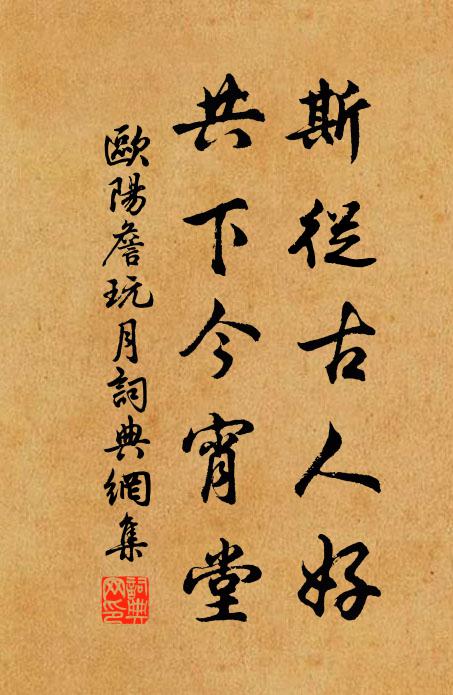 斯從古人好
共下今宵堂
歐陽詹玩月詞典網集
詞典
网印